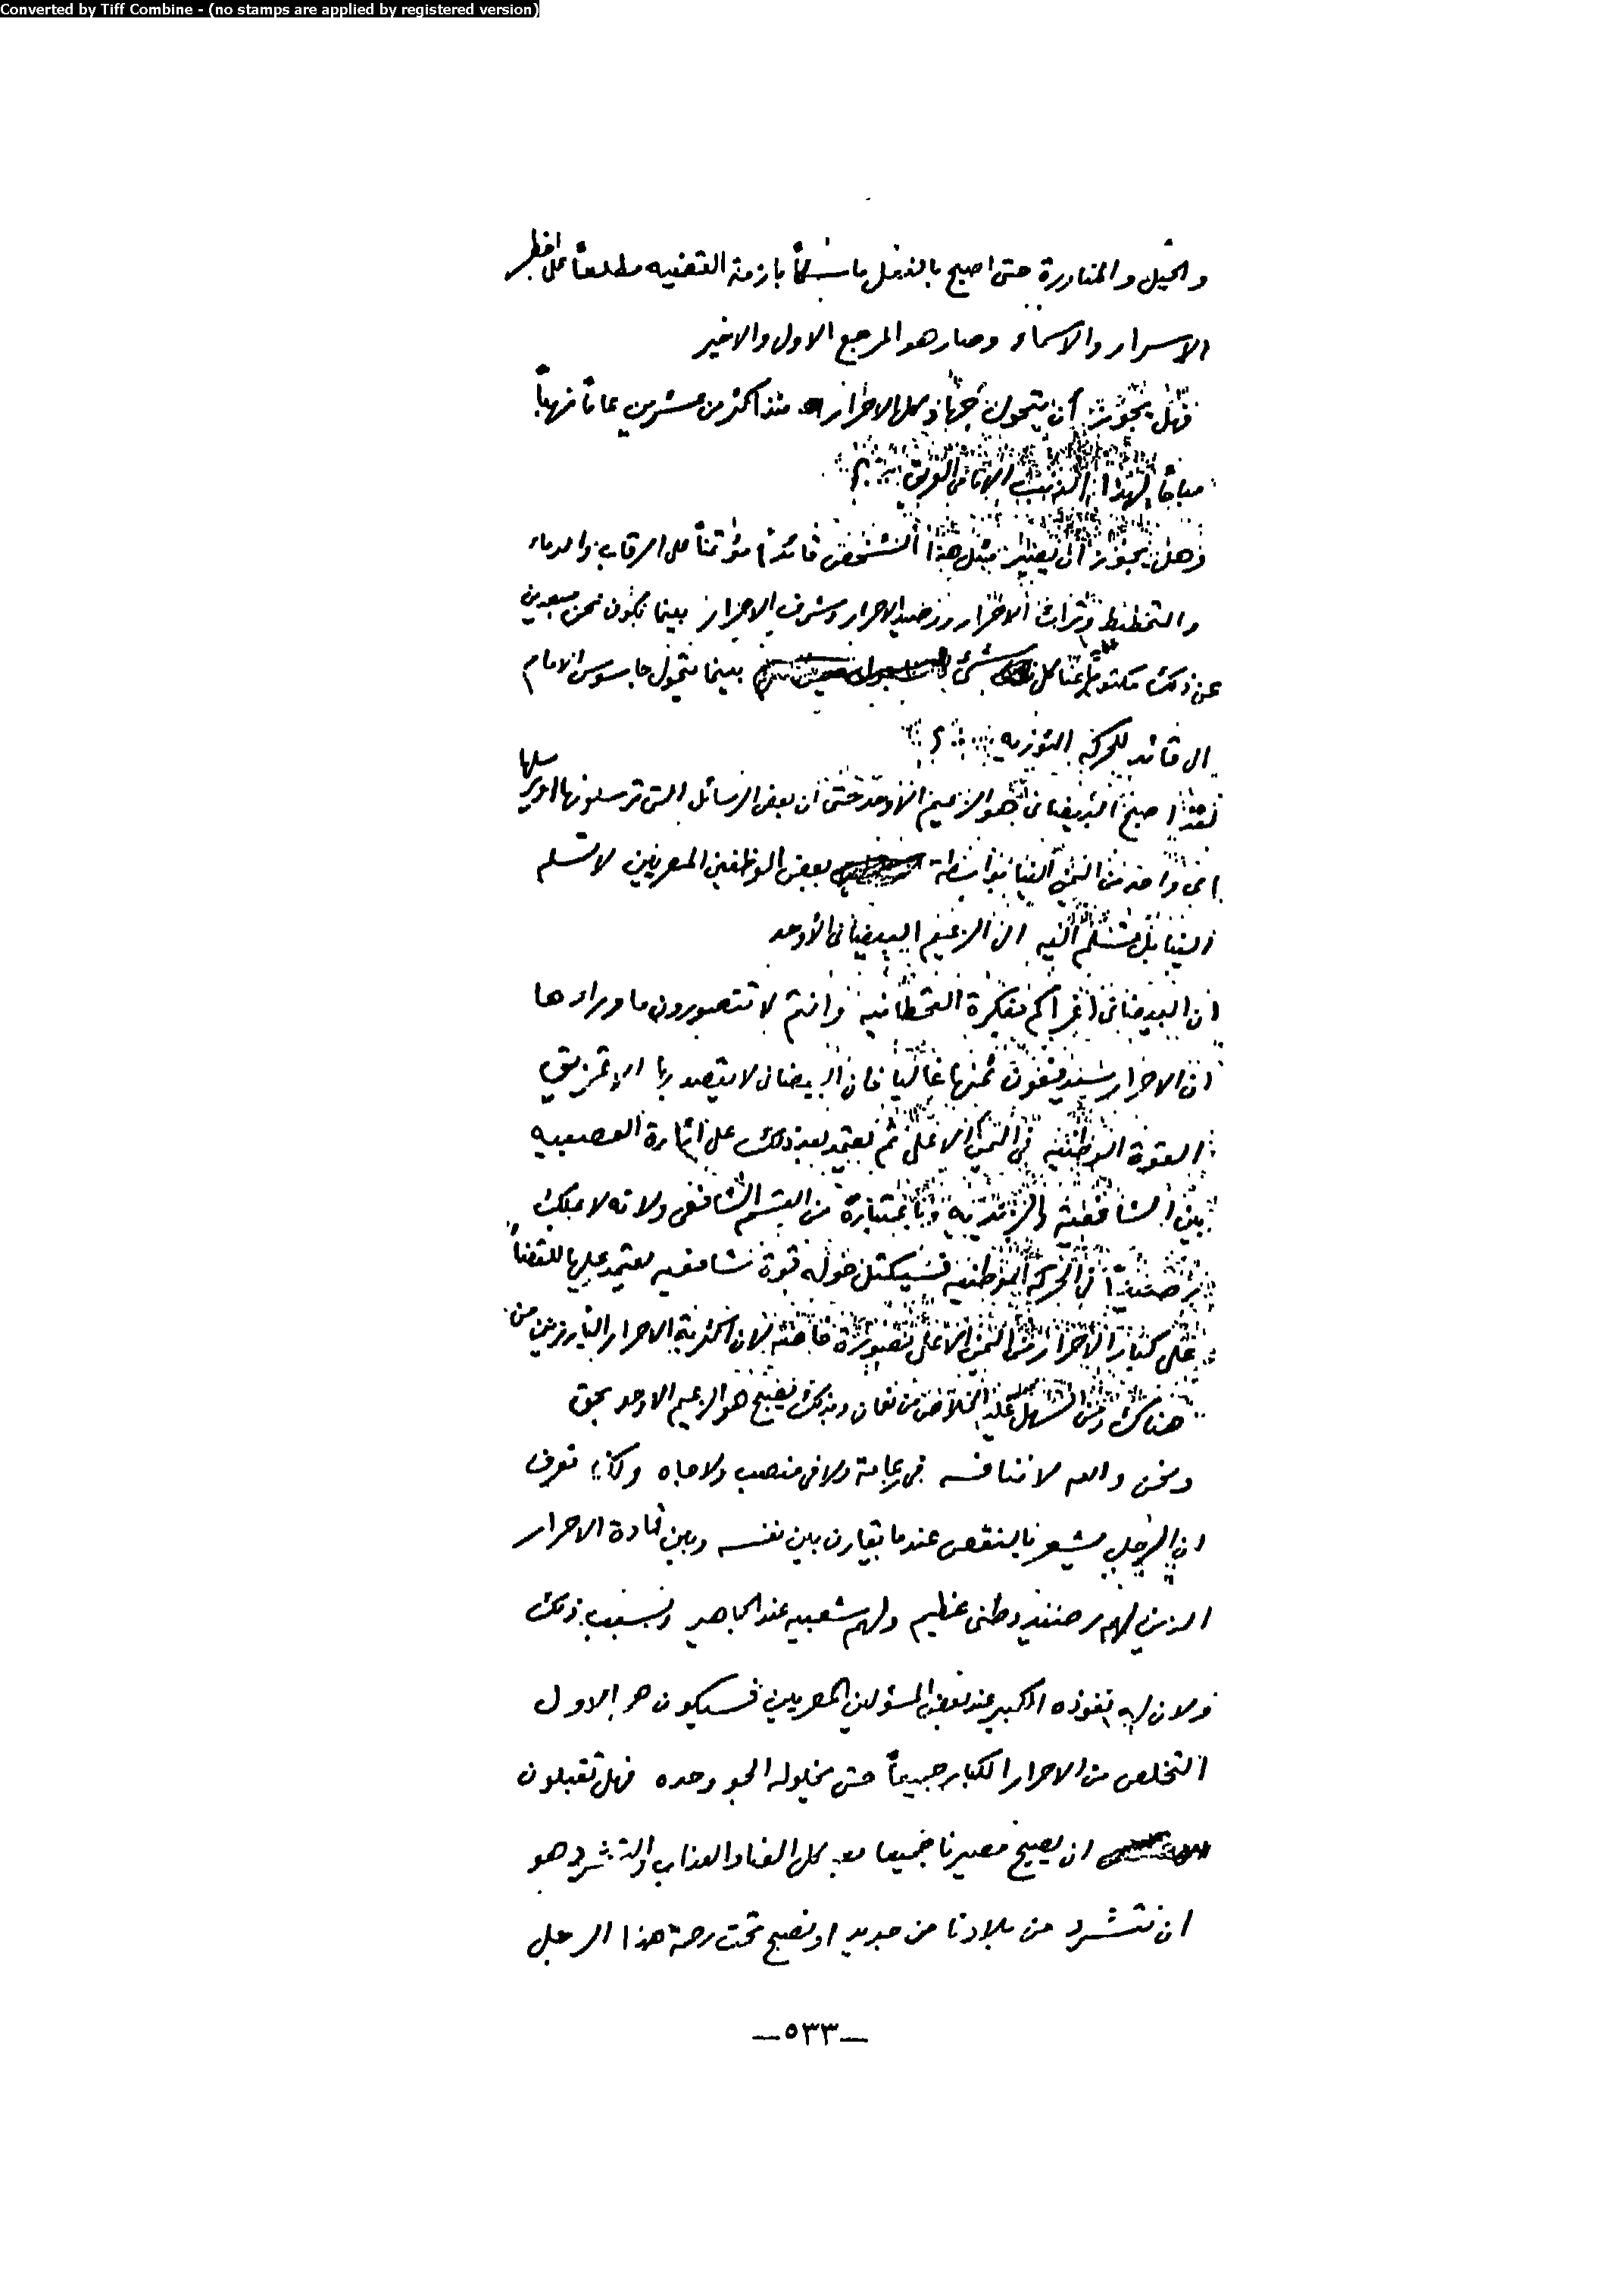 Converted by Tiff Combine - (no stamps are applied by registered version)
والحيل والمناورة حتى اصبح بالفعل ماسكاً بازمة القضيه مطلعاً على اخطر
الاسرار والاسماء وصار هو المرجع الاول والاخير
فهل يجوز أن يتحول جهاد كل الاحرار منذ اكثر من عشرين عاماً نهباً
مباحاً لهذا الذئب
وهل يجوز ان يصير مثل هذا الشخص قائداً مؤتمناً على الرقاب والدماء
والتخطيط وتراث الاحرار ورصيد الاحرار وشرف الاحرار بينما نكون نحن مبعدين
عن ذلك مكتوماً عنا كل شئ بينما يتحول جاسوس الامام
الى قائد للحركه الثوريه ؟
لقد اصبح البيضاني هو الزعيم الاوحد حتى ان بعض الرسائل التي ترسلونها او يرسلها
اي واحد من اليمن الينا بواسطة بعض الموظفين المصريين لا تسلم
الينا بل تسلم اليه الى الزعيم البيضاني الأوحد
ان البيضاني اغراكم بفكرة القحطانيه وانتم لا تتصورون ما وراءها
ان الاحرار سيدفعون ثمنها غاليا فان البيضاني لا يقصد بها الا تمزيق
القوة الوطنيه في اليمن الاعلى ثم يعتمد بعد ذلك على اثارة العصبيه
بين الشافعيه والزيديه وباعتباره من القسم الشافعي ولانه لا يملك
رصيداً في الحركه الوطنيه فسيكتل حوله قوة شافعيه يعتمد عليها للقضاء
على كبار الاحرار من اليمن الاعلى بصورة خاصه لان اكثرية الاحرار البارزين من
هناك ومن السهل عليه الخلاص من نعمان وبذلك يصبح هو الزعيم الاوحد بحق
ونحن والله لا ننافسه في زعامة ولا في منصب ولا جاه ولكنا نعرف
ان الرجل يشعر بالنقص عندما يقارن بين نفسه وبين قادة الاحرار
الذين لهم رصيد وطني عظيم ولهم شعبيه عند الجماهير وبسبب ذلك
ولان له نفوذه الكبير عند بعض المسؤلين المصريين فسيكون همه الاول
التخلص من الاحرار الكبار جميعاً حتى يخلو له الجو وحده فهل تقبلون
ان يصبح مصيرنا جميعا بعد كل العناء والعذاب والتشرد هو
ان نتشرد من بلادنا من جديد او نصبح تحت رحمة هذا الرجل
—٥٣٣—